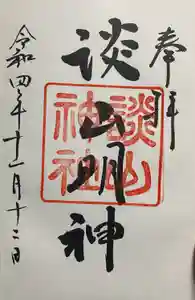 奉拝
談山明神
談山神社
令和四年十一月十二日